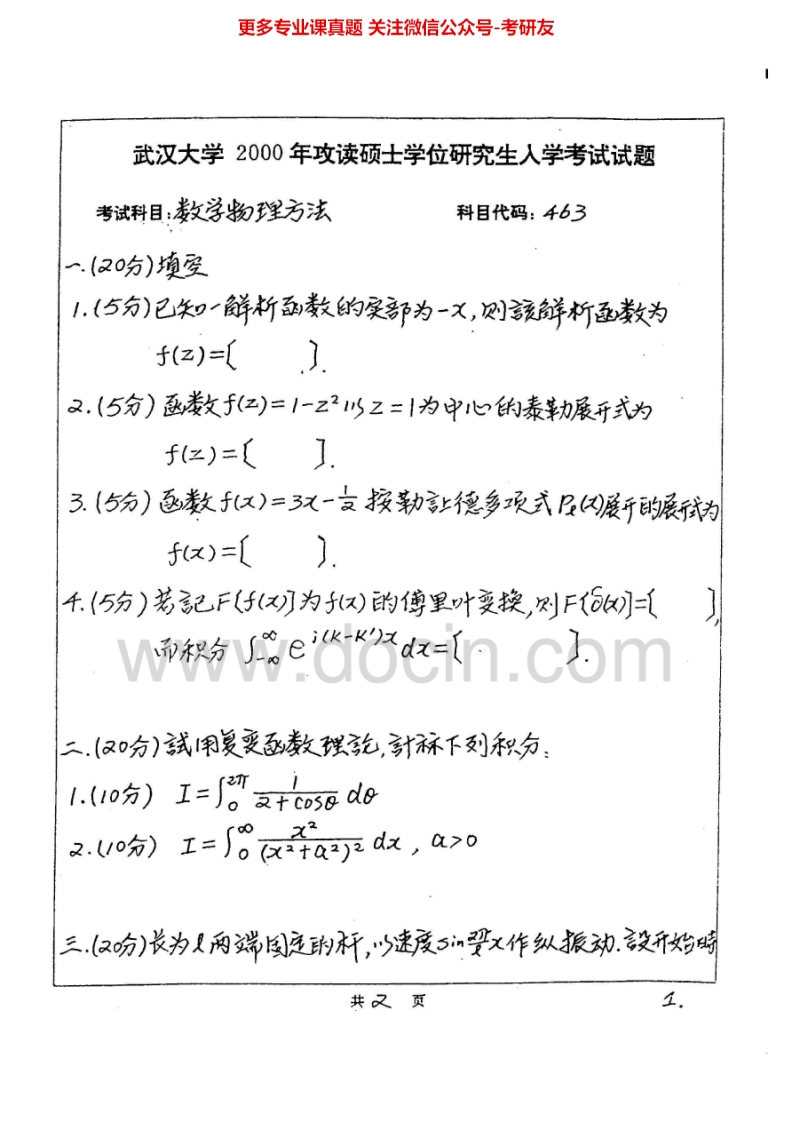 更多专业课真题 关注微信公众号-考研友
武汉大学 2000 年攻读硕士学位研究生入学考试试题
考试科目:数学物理方法 科目代码: 463
一.(20分)填空
1.(5分)已知一解析函数的实部为-x,则該解析函数为
f(z)=[ ].
2.(5分)函数f(z)=1-z²以z=1为中心的泰勒展开式为
f(z)=[ ].
3.(5分)函数f(x)=3x-1/2 按勒讓德多项式Pℓ(x)展开的展开式为
f(x)=[ ].
4.(5分)若記F[f(x)]为f(x)的傅里叶变换,则F[δ(x)]=[ ],
而积分 ∫_{-∞}^{∞} e^{i(k-k')x} dx=[ ].
www.docin.com
二.(20分)試用复变函数理論,計祘下列积分:
1.(10分) I=∫_0^{2π} 1/(2+cosθ) dθ
2.(10分) I=∫_0^∞ x²/(x²+a²)² dx , a>0
三.(20分)长为ℓ两端固定的杆,以速度sin 2π/ℓ x作纵振动.設开始時
共2 页 1.